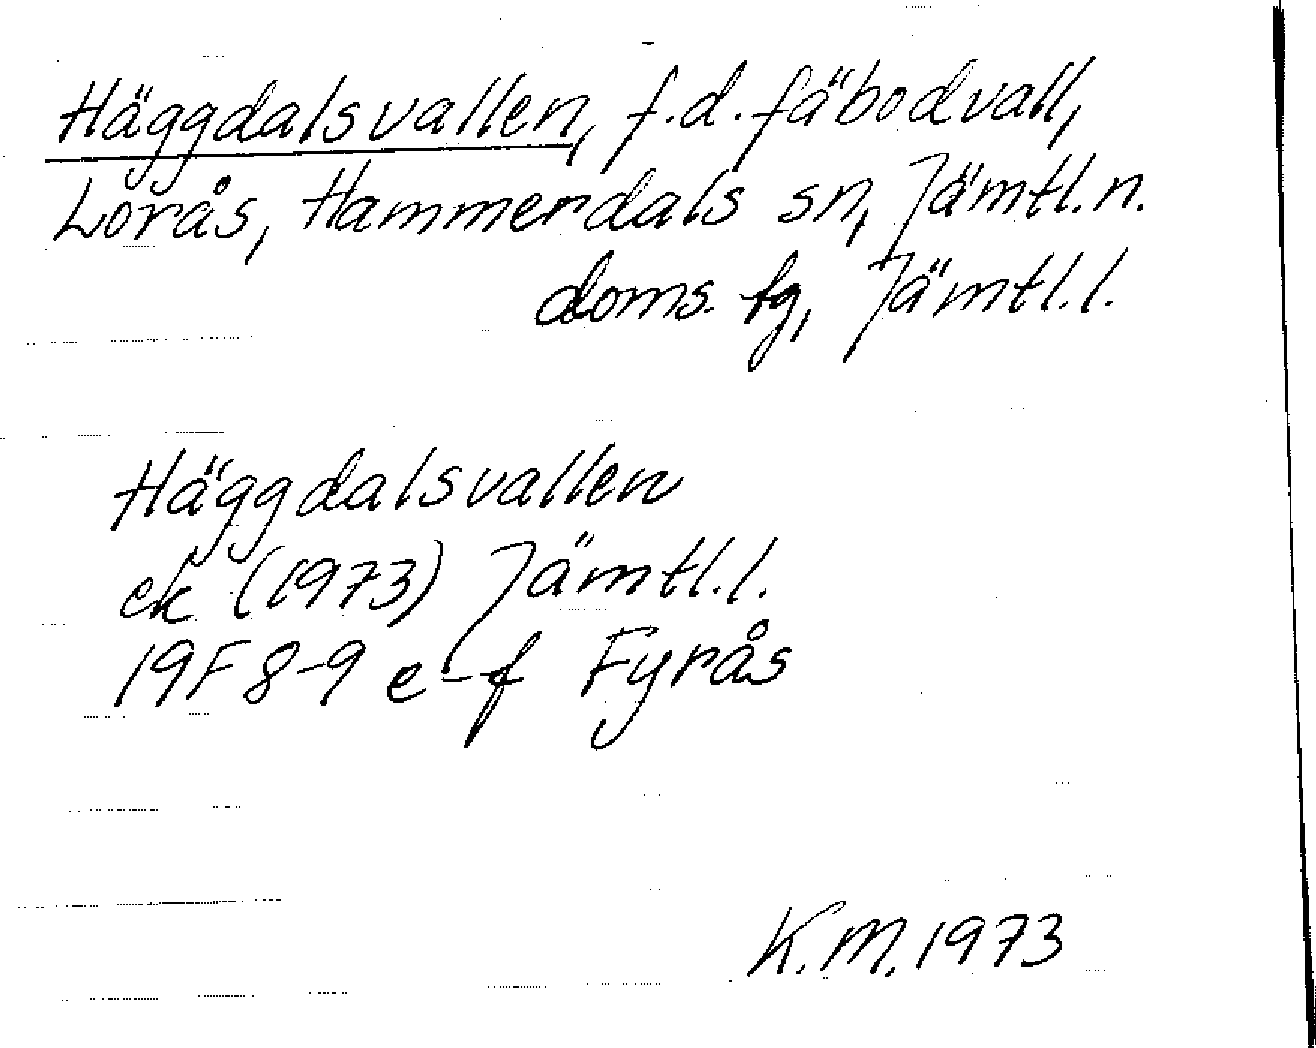 Häggdalsvallen, f.d. fäbodvall,
Lorås, Hammerdals sn, Jämtl. n.
doms. fg, Jämtl. l.
Häggdalsvallen
ek (1973) Jämtl. l.
19F 8-9 e-f Fyrås
K.M. 1973